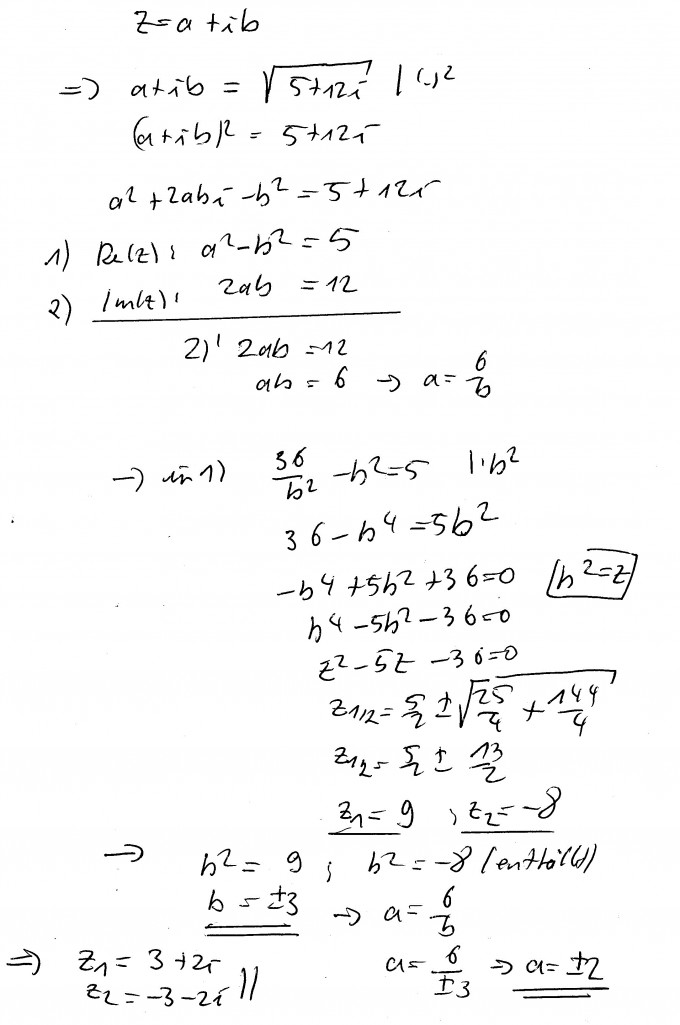 z=a+ib
=> a+ib = √(5+12i) |(..)²
(a+ib)² = 5+12i
a²+2abi-b² = 5+12i
1) Re(z): a²-b² = 5
2) Im(z): 2ab = 12
2)' 2ab = 12
ab = 6 → a = 6/b
→ in 1) 36/b² - b² = 5 |·b²
36-b⁴ = 5b²
-b⁴+5b²+36=0 |b²=z
b⁴-5b²-36=0
z²-5z-36=0
z1/2 = 5/2 ± √(25/4 + 144/4)
z1/2 = 5/2 ± 13/2
z₁ = 9 ; z₂ = -8
→ b² = 9 ; b² = -8 (entfällt)
b = ±3 → a = 6/b
=> z₁ = 3+2i a = 6/±3 => a = ±2
z₂ = -3-2i //